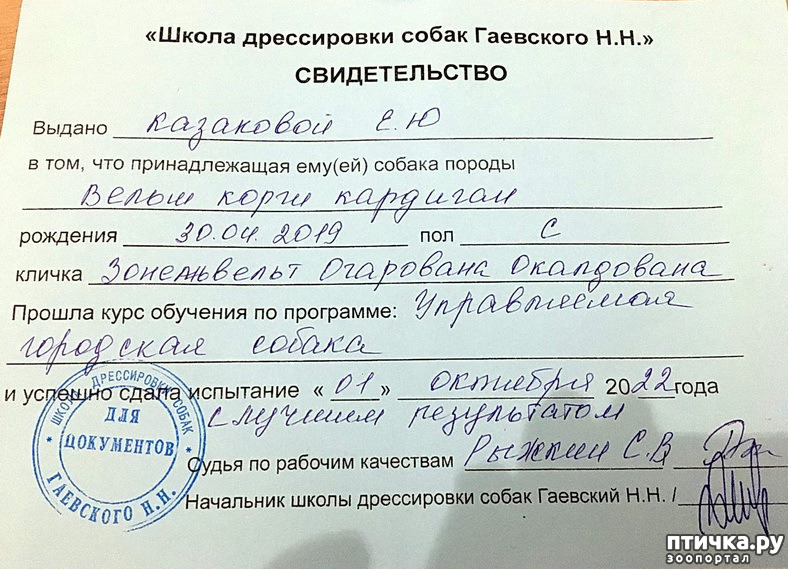 «Школа дрессировки собак Гаевского Н.Н.»
СВИДЕТЕЛЬСТВО
Выдано Казаковой Е.Ю
в том, что принадлежащая ему(ей) собака породы
Вельш корги кардиган
рождения 30.04.2019 пол С
кличка Зоненвельт Огарована Околдована
Прошла курс обучения по программе: Управляемая
городская собака
и успешно сдала испытание «01» октября 2022года
с лучшим результатом
Судья по рабочим качествам Рыжкин С.В
Начальник школы дрессировки собак Гаевский Н.Н. /
ШКОЛА ДРЕССИРОВКИ СОБАК
ДЛЯ
ДОКУМЕНТОВ
ГАЕВСКОГО Н.Н.
птичка.ру
зоопортал